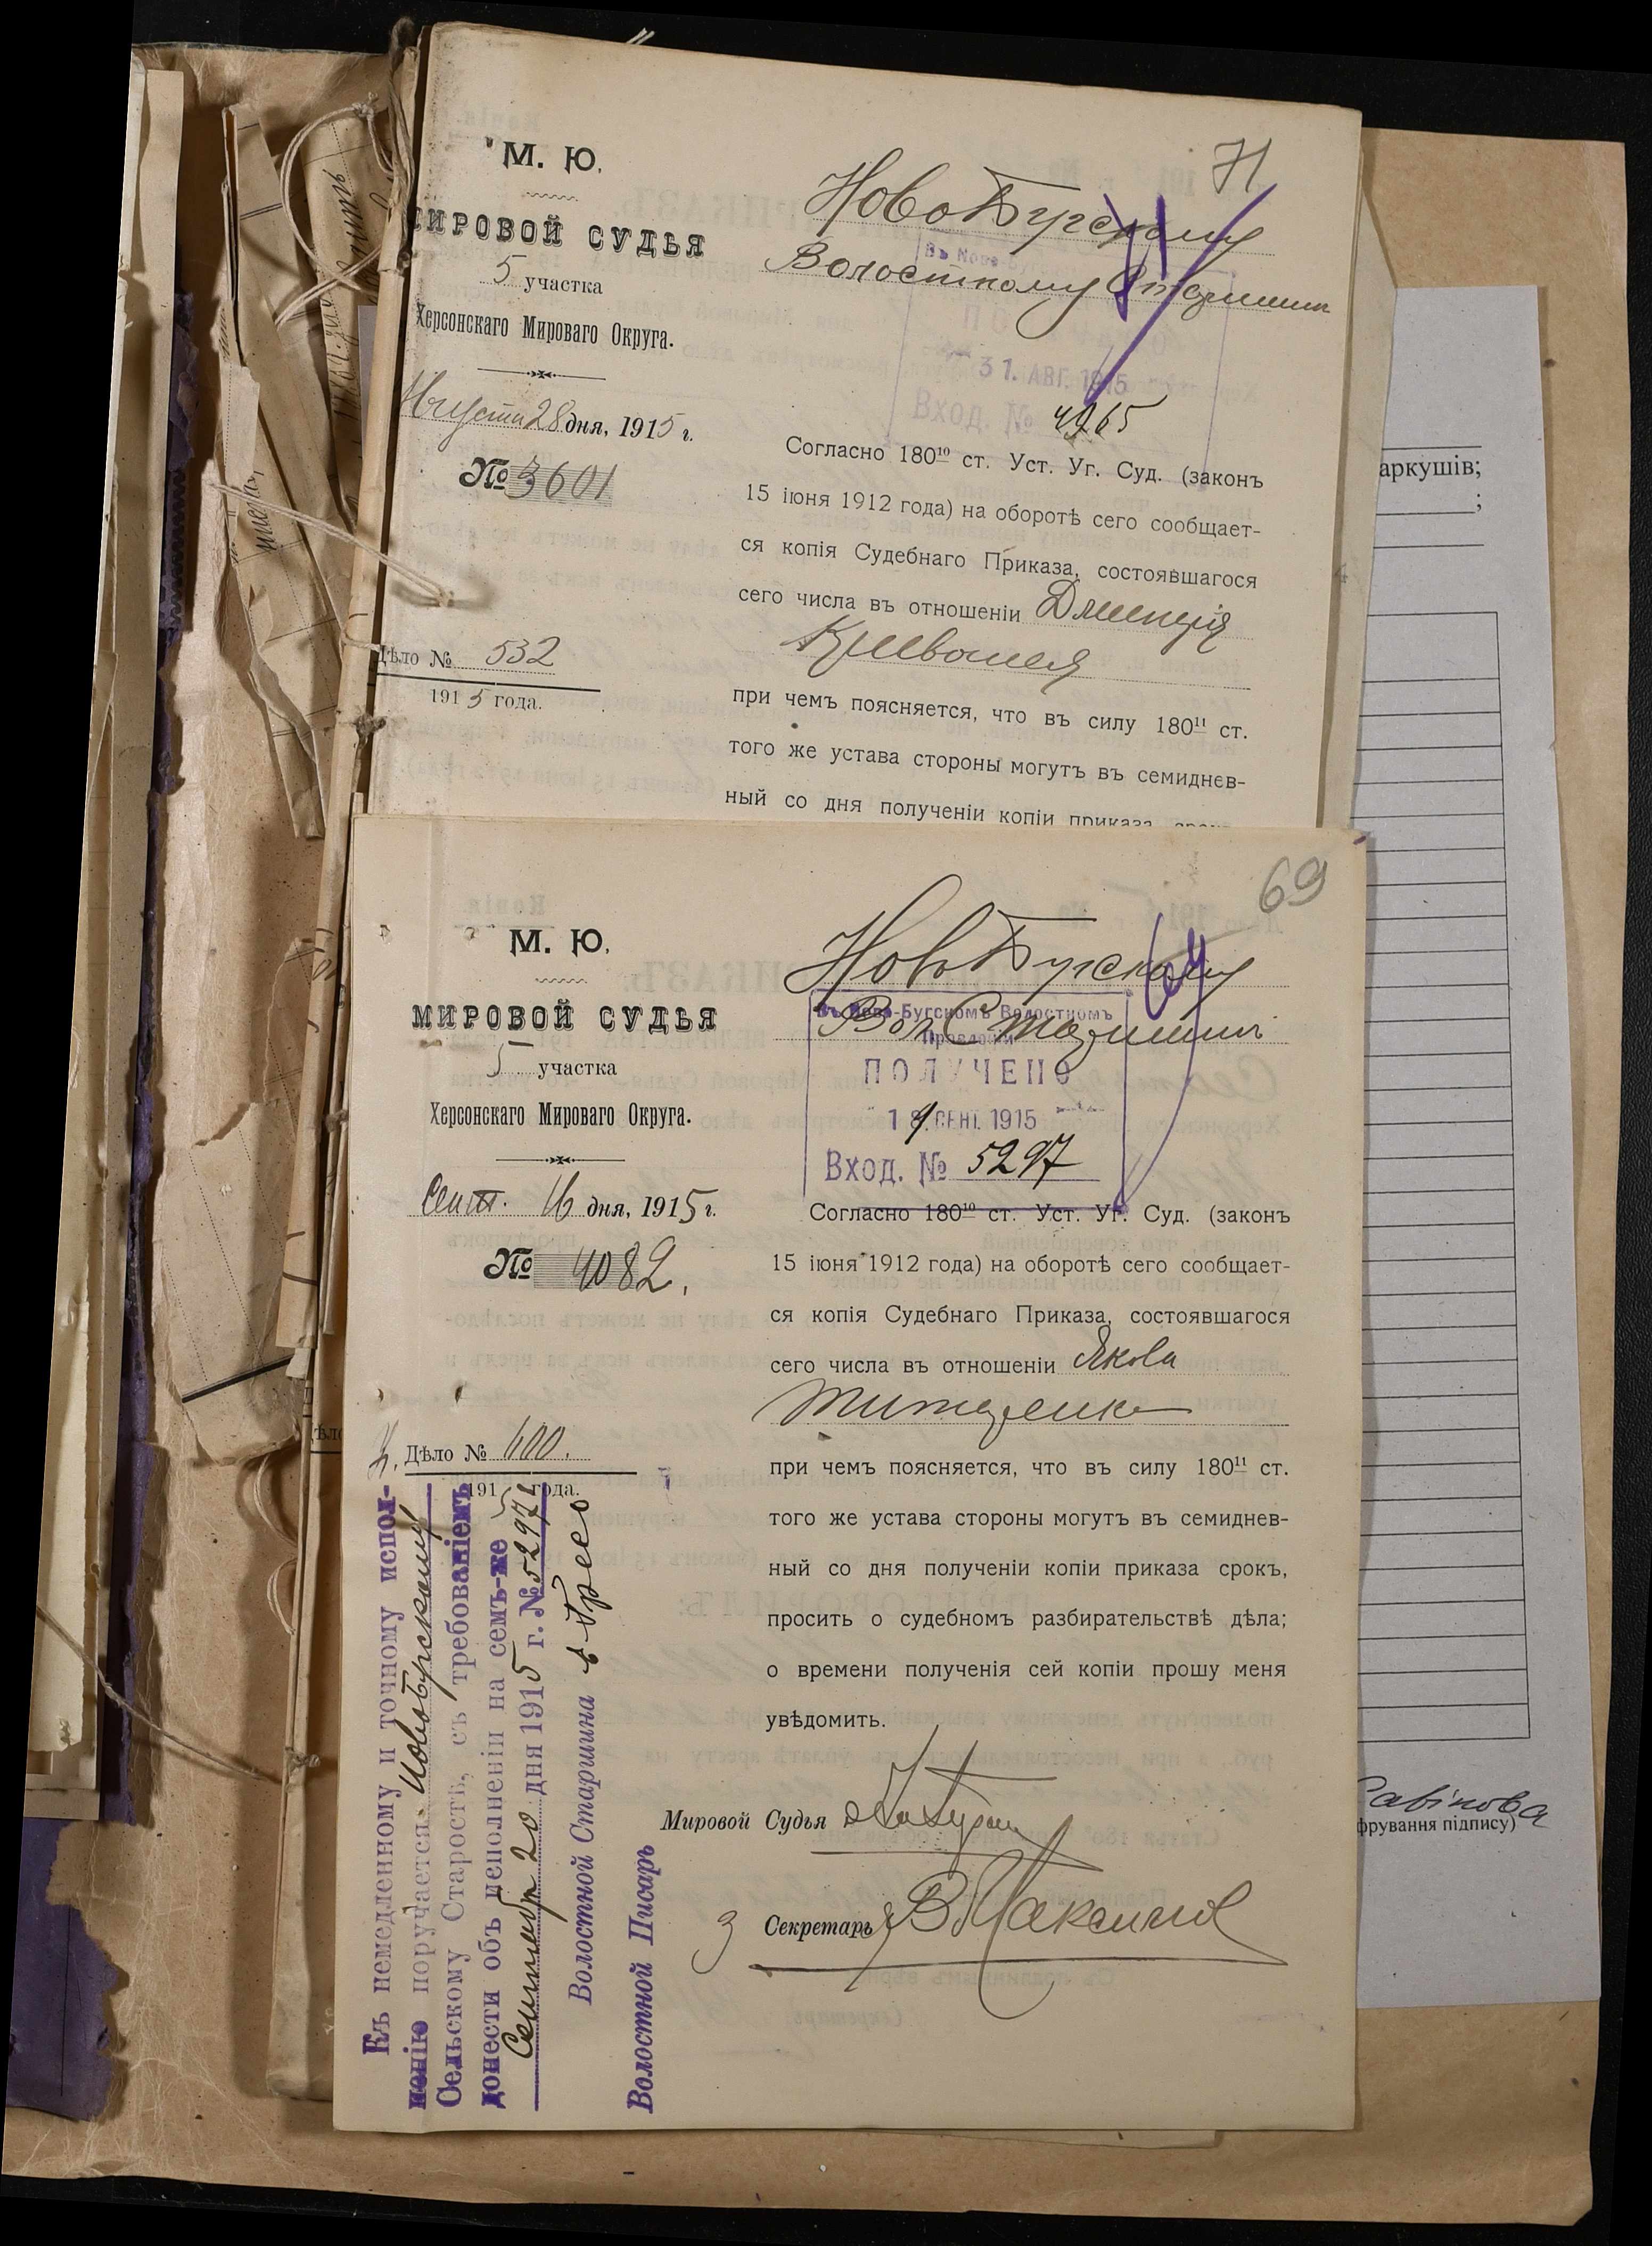 71
М. Ю.
МИРОВОЙ СУДЬЯ
5 участка
Херсонскаго Мироваго Округа.
Августа 28 дня, 1915 г.
№ 3601
Дѣло № 532
1915 года.
НовоБугскому
Волостному Старшинѣ
31. АВГ. 1915
Вход. № 4965
Согласно 180¹⁰ ст. Уст. Уг. Суд. (законъ
15 іюня 1912 года) на оборотѣ сего сообщает-
ся копія Судебнаго Приказа, состоявшагося
сего числа въ отношеніи Дмитрія
при чемъ поясняется, что въ силу 180¹¹ ст.
того же устава стороны могутъ въ семиднев-
ный со дня полученіи копіи приказа
69
М. Ю.
МИРОВОЙ СУДЬЯ
5 участка
Херсонскаго Мироваго Округа.
Сент. 16 дня, 1915 г.
№ 4082.
Дѣло № 600.
1915 года.
НовоБугскому
Вол. Старшинѣ
Въ Ново-Бугскомъ Волостномъ
Правленіи
ПОЛУЧЕНО
19 СЕНТ. 1915
Вход. № 5297
Согласно 180¹⁰ ст. Уст. Уг. Суд. (законъ
15 іюня 1912 года) на оборотѣ сего сообщает-
ся копія Судебнаго Приказа, состоявшагося
сего числа въ отношеніи Якова
Титаренко
при чемъ поясняется, что въ силу 180¹¹ ст.
того же устава стороны могутъ въ семиднев-
ный со дня полученіи копіи приказа срокъ,
просить о судебномъ разбирательствѣ дѣла;
о времени полученія сей копіи прошу меня
увѣдомить.
Мировой Судья
Секретарь В. Максимов
Къ немедленному и точному испол-
ненію поручается Новобугскому
Сельскому Старостѣ, съ требованіемъ
донести объ исполненіи на семъ-же
Сентября 20 дня 1915 г. № 5297
Волостной Старшина
Волостной Писарь
аркушів;
;
фрування підпису)